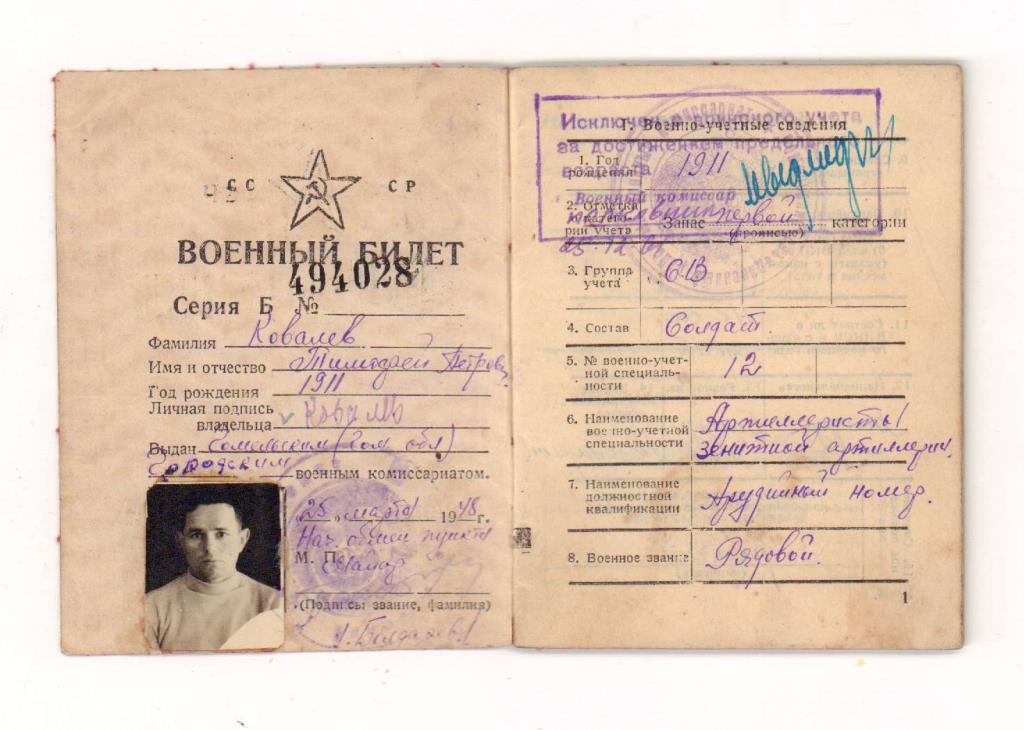 СС СР
ВОЕННЫЙ БИЛЕТ
494028
Серия Б №
Фамилия Ковалев
Имя и отчество Тимофей Петров
Год рождения 1911
Личная подпись
владельца Коваль
Выдан Гомельским (Гом обл)
Городским военным комиссариатом.
"25" марта 1948 г.
Нач. обмен пункта
М. П.
(Подпись, звание, фамилия)
Исключен с воинского учета
за достижением предельн
возраста
Военный комиссар
25 12
I. Военно-учетные сведения
1. Год
рождения 1911
2. Отметка
о катего-
рии учета Запас первой категории
(прописью)
3. Группа
учета СВ
4. Состав Солдат
5. № военно-учет-
ной специаль-
ности 12
6. Наименование
военно-учетной
специальности Артиллеристы
зенитной артиллерии.
7. Наименование
должностной
квалификации Арудийный номер.
8. Военное звание Рядовой.
1